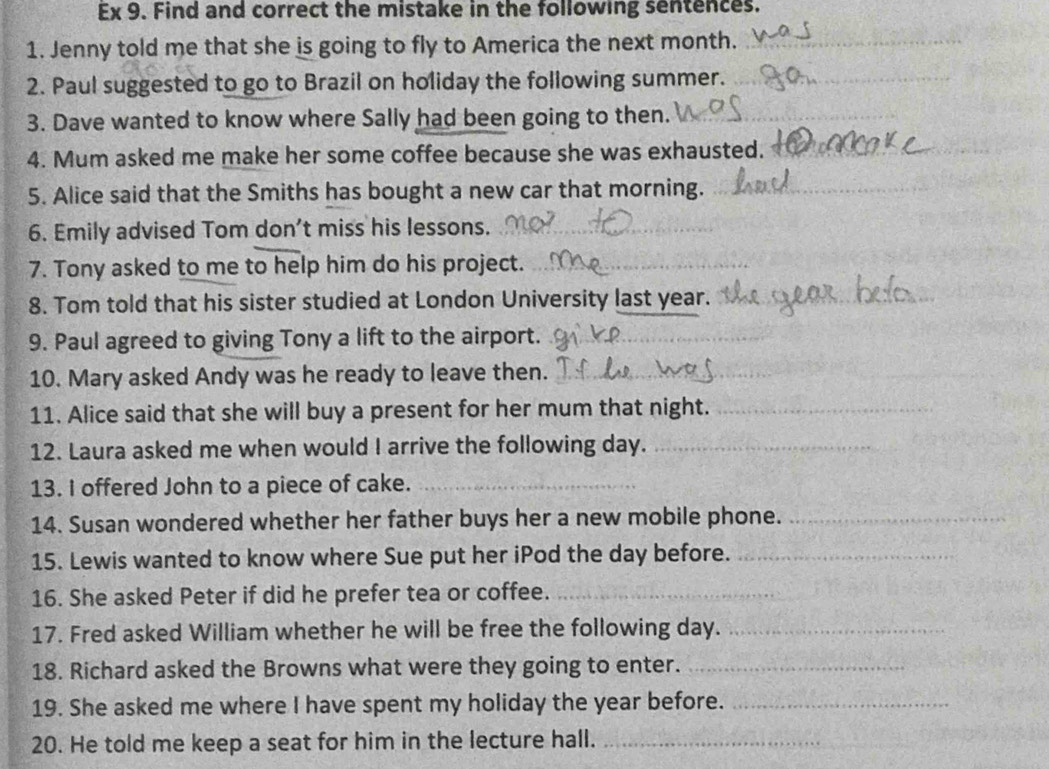 Ex 9. Find and correct the mistake in the following sentences.
1. Jenny told me that she is going to fly to America the next month. was
2. Paul suggested to go to Brazil on holiday the following summer. go
3. Dave wanted to know where Sally had been going to then. was
4. Mum asked me make her some coffee because she was exhausted. to make
5. Alice said that the Smiths has bought a new car that morning. had
6. Emily advised Tom don't miss his lessons. not to
7. Tony asked to me to help him do his project. me
8. Tom told that his sister studied at London University last year. the year befo
9. Paul agreed to giving Tony a lift to the airport. give
10. Mary asked Andy was he ready to leave then. If he was
11. Alice said that she will buy a present for her mum that night.
12. Laura asked me when would I arrive the following day.
13. I offered John to a piece of cake.
14. Susan wondered whether her father buys her a new mobile phone.
15. Lewis wanted to know where Sue put her iPod the day before.
16. She asked Peter if did he prefer tea or coffee.
17. Fred asked William whether he will be free the following day.
18. Richard asked the Browns what were they going to enter.
19. She asked me where I have spent my holiday the year before.
20. He told me keep a seat for him in the lecture hall.